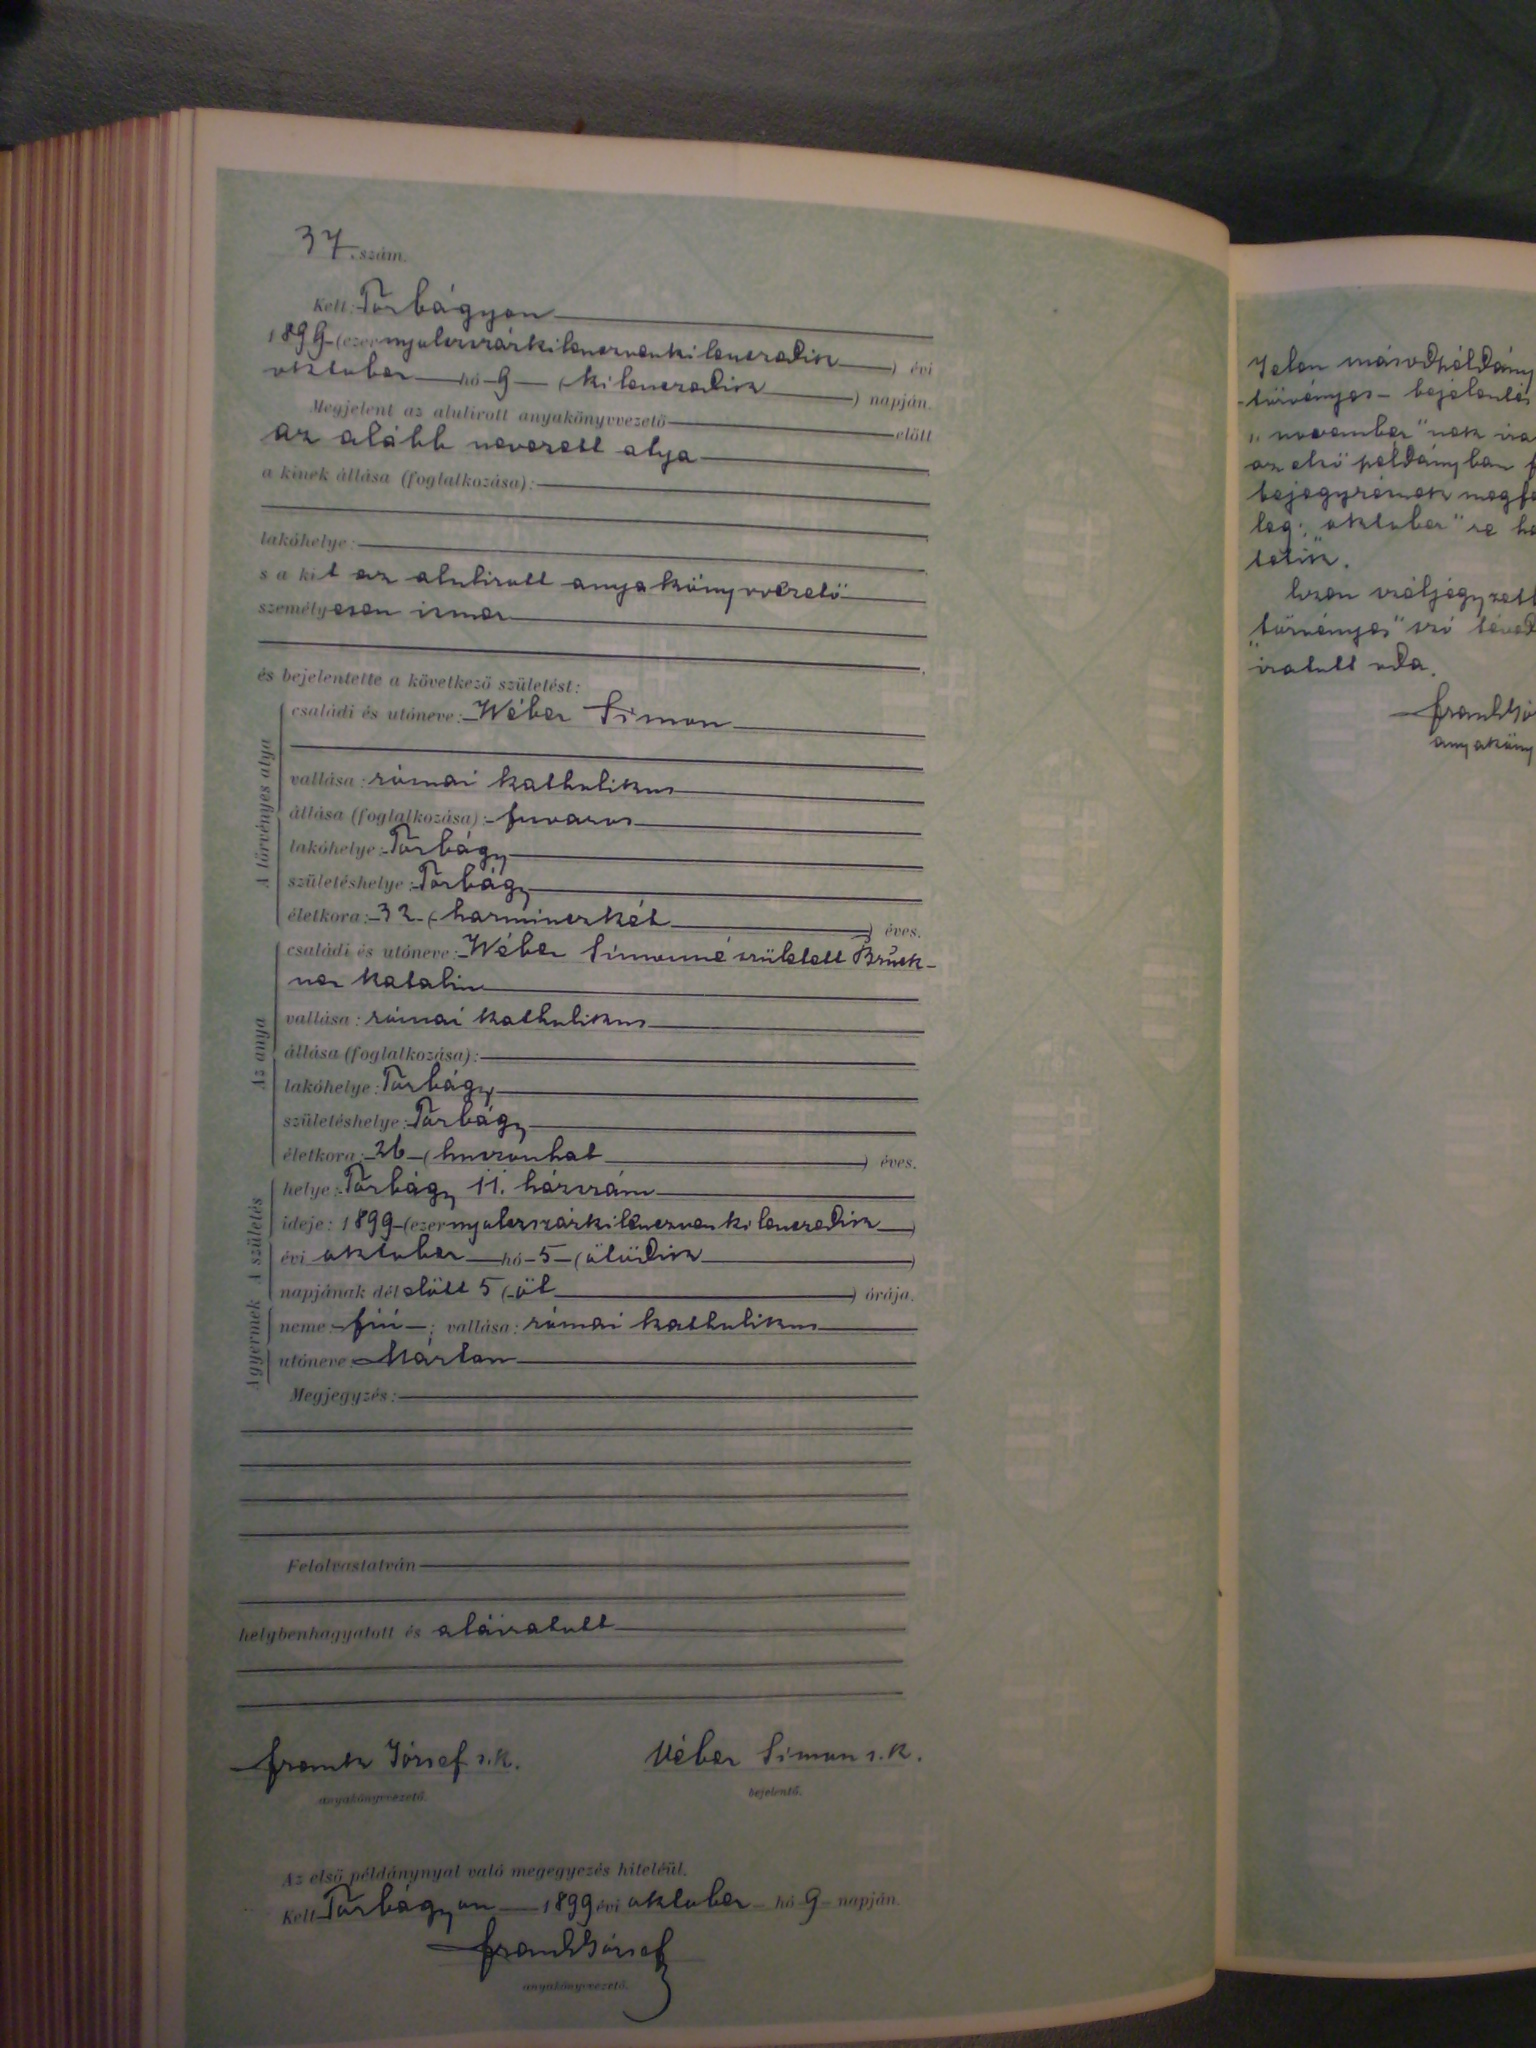 37. szám.
Kelt: Törbágyon
1899 (ezernyolczszázkilenczvenkilenczedik) évi
október hó 9 (kilenczedik) napján.
Megjelent az alulirott anyakönyvvezető előtt
az alább nevezett atya
a kinek állása (foglalkozása):
lakóhelye:
s a kit az alulirott anyakönyvvezető
személyesen ismer
és bejelentette a következő születést:
A törvényes atya
családi és utóneve: Wéber Simon
vallása: római katholikus
állása (foglalkozása): fuvaros
lakóhelye: Törbágy
születéshelye: Törbágy
életkora: 32 (harminczkét) éves.
Az anya
családi és utóneve: Wéber Simonné született Bruck-
ner Katalin
vallása: római katholikus
állása (foglalkozása):
lakóhelye: Törbágy
születéshelye: Törbágy
életkora: 26 (huszonhat) éves.
A születés
helye: Törbágy 11. házszám
ideje: 1899 (ezernyolczszázkilenczvenkilenczedik)
évi október hó 5 (ötödik)
napjának délelőtt 5 (öt) órája.
A gyermek
neme: fiú; vallása: római katholikus
utóneve: Márton
Megjegyzés:
Felolvastatván
helybenhagyatott és aláiratott
Frank József s.k. Wéber Simon s.k.
anyakönyvvezető. bejelentő.
Az első példánynyal való megegyezés hiteléül.
Kelt Törbágyon 1899 évi október hó 9 napján.
Frank József
anyakönyvvezető.
Jelen másodpéldány
- törvényes - bejelentés
"november"nek
az első példányban
bejegyzésnek
leg: "október" re
tetik.
Ezen széljegyzett
"törvényes" szó
iratott oda.
Frank
anyaköny